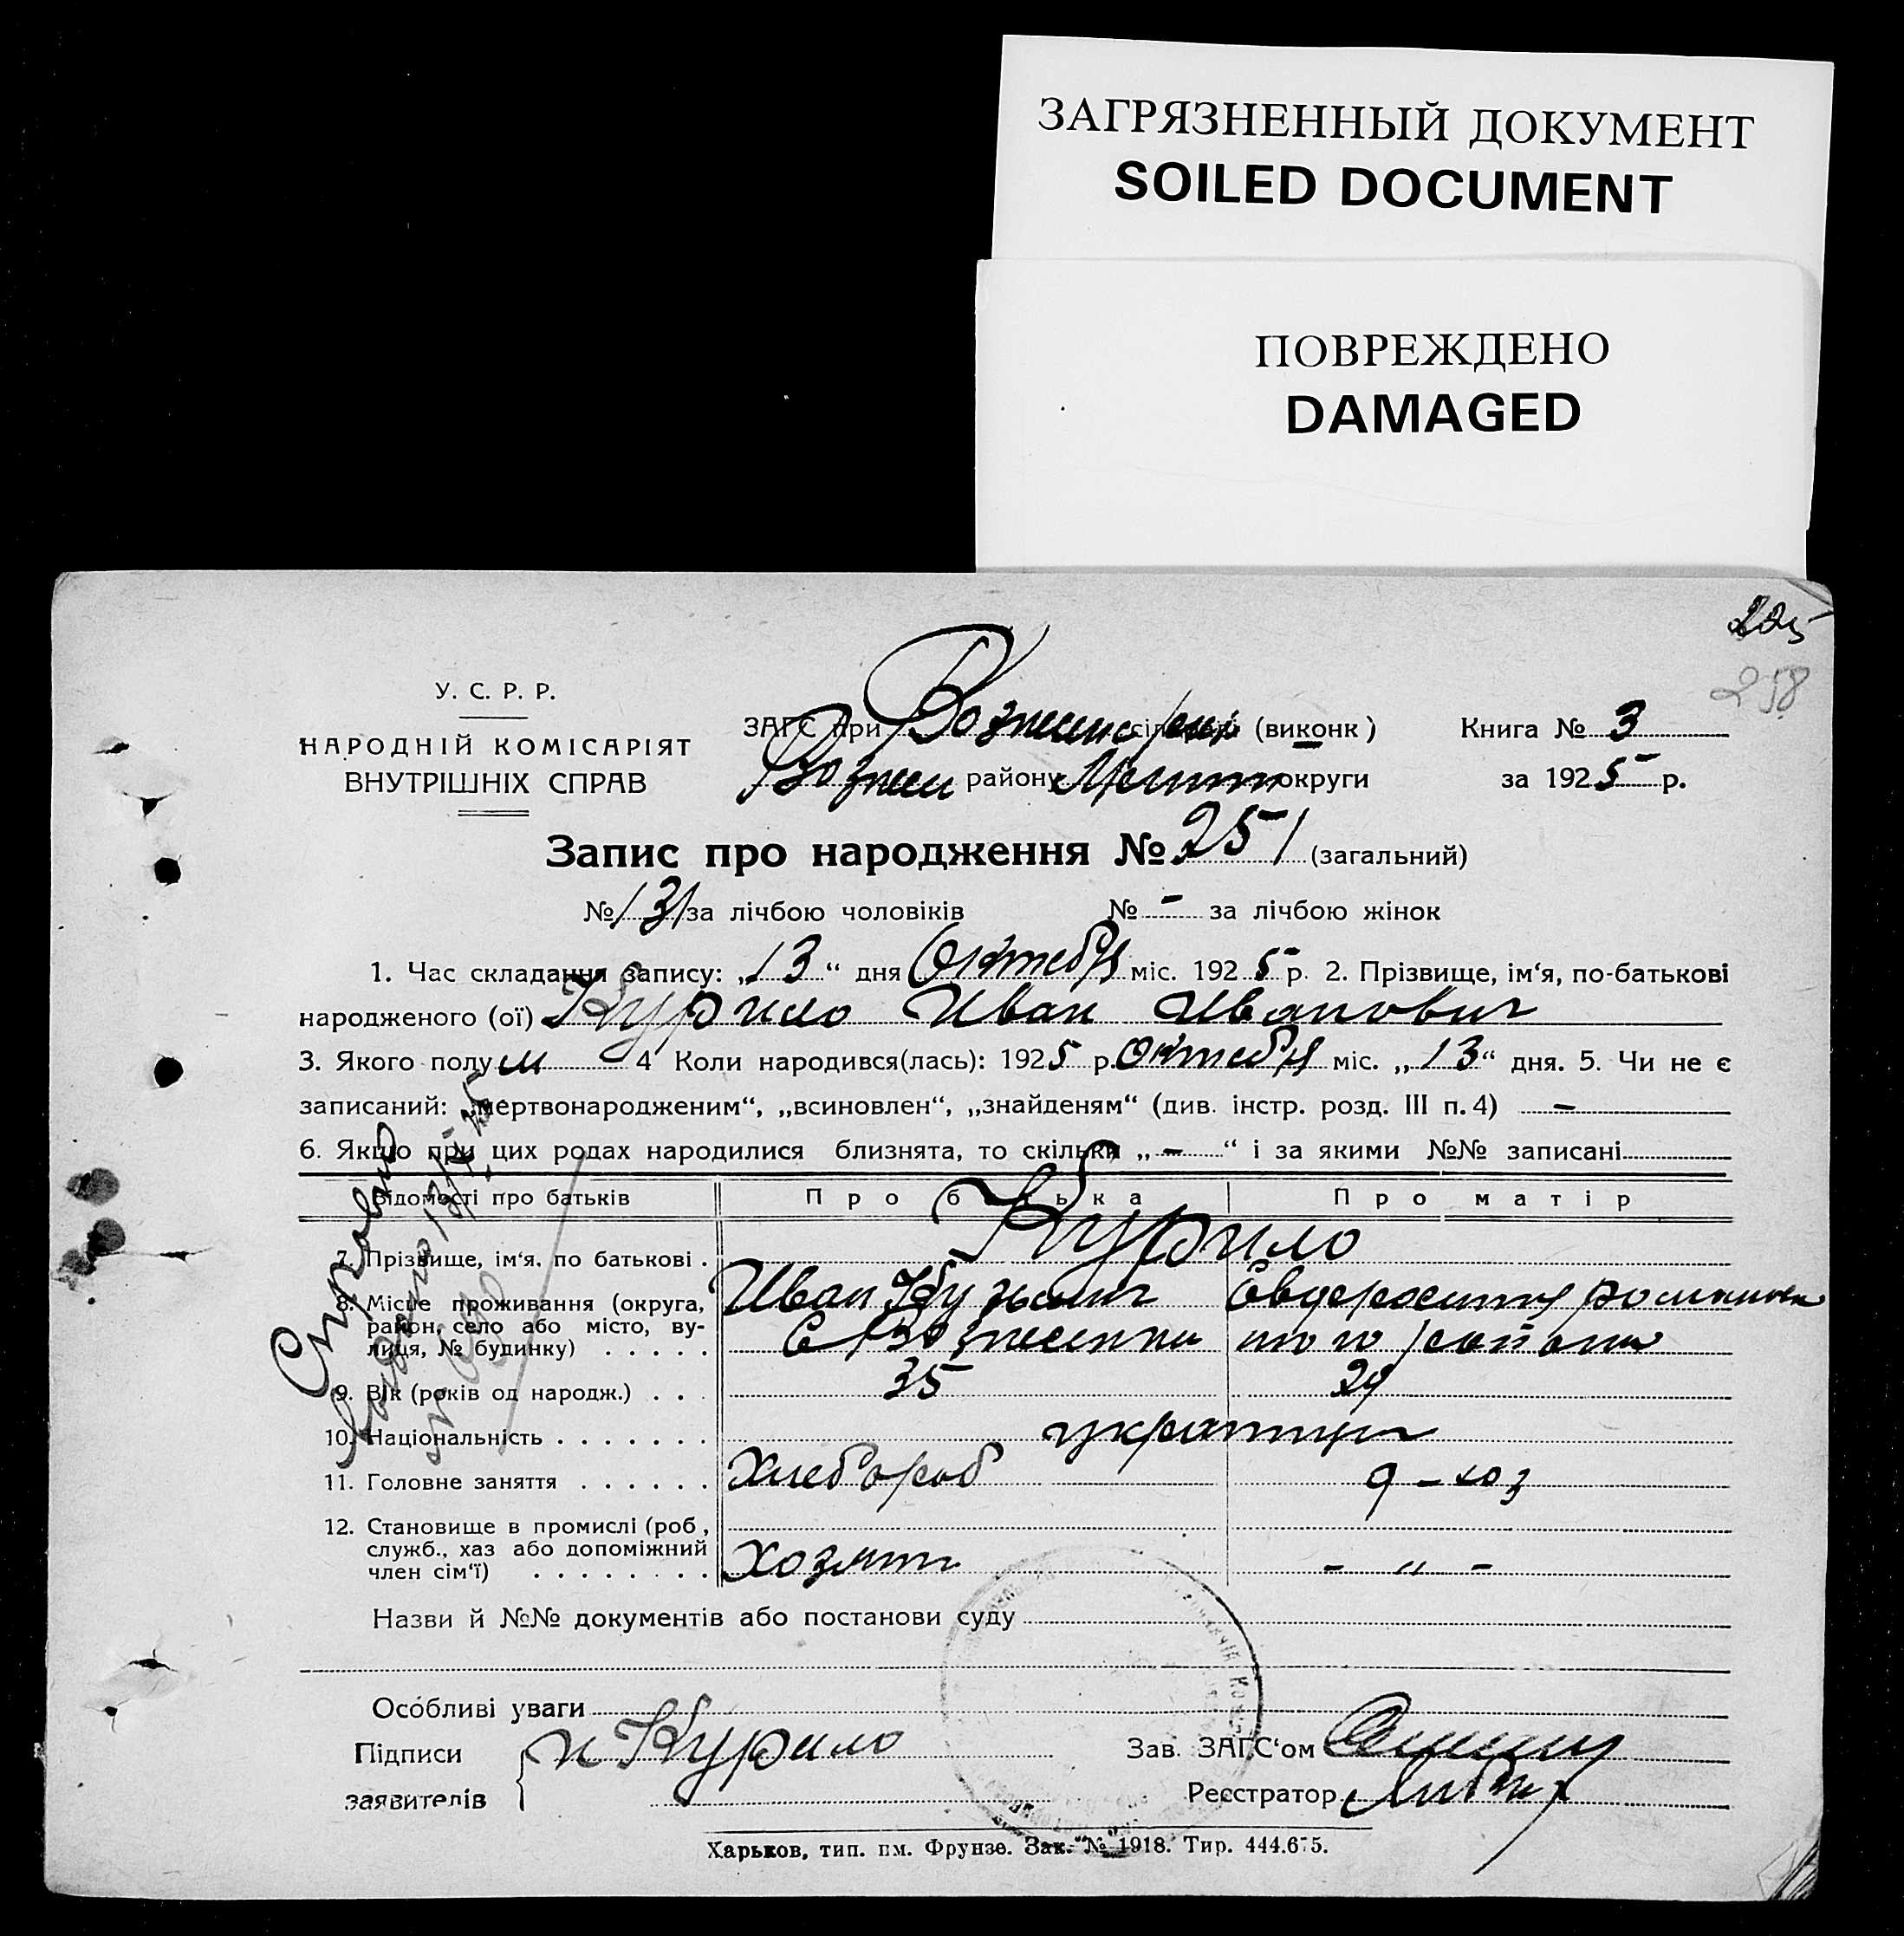 ЗАГРЯЗНЕННЫЙ ДОКУМЕНТ
SOILED DOCUMENT
ПОВРЕЖДЕНО
DAMAGED
205
258
У. С. Р. Р.
НАРОДНІЙ КОМІСАРІЯТ
ВНУТРІШНІХ СПРАВ
ЗАГС при (виконк)
Вознесен району Мелит округи
Книга № 3
за 1925 р.
Запис про народження № 251 (загальний)
№ 131 за лічбою чоловіків № - за лічбою жінок
1. Час складання запису: „13“ дня Октября міс. 1925 р. 2. Прізвище, ім‘я, по-батькові
народженого (ої) Курило Иван Иванович
3. Якого полу м 4 Коли народився(лась): 1925 р. Октября міс. „13“ дня. 5. Чи не є
записаний: „мертвонародженим“, „всиновлен“, „знайденям“ (див. інстр. розд. III п. 4) —
6. Якщо при цих родах народилися близнята, то скільки „-“ і за якими №№ записані
Відомості про батьків Про батька Про матір
7. Прізвище, ім‘я, по батькові . Курило
Иван Кузьмич Евдокия Романовна
8. Місце проживання (округа,
район, село або місто, ву-
лиця, № будинку) . . . . . С Вознесенки
9. Вік (років од народж.) . . . 35 29
10. Національність . . . . . . . украинцы
11. Головне заняття . . . . . . Хлебороб д-хоз
12. Становище в промислі (роб.,
служб., хаз або допоміжний
член сім‘ї) . . . . . . . . Хозяин - „ -
Назви й №№ документів або постанови суду
Осóбливі уваги
Підписи
заявителів
и Курило
Зав. ЗАГС‘ом
Реєстратор
Харьков, тип. им. Фрунзе. Зак. № 1918. Тир. 444.675.